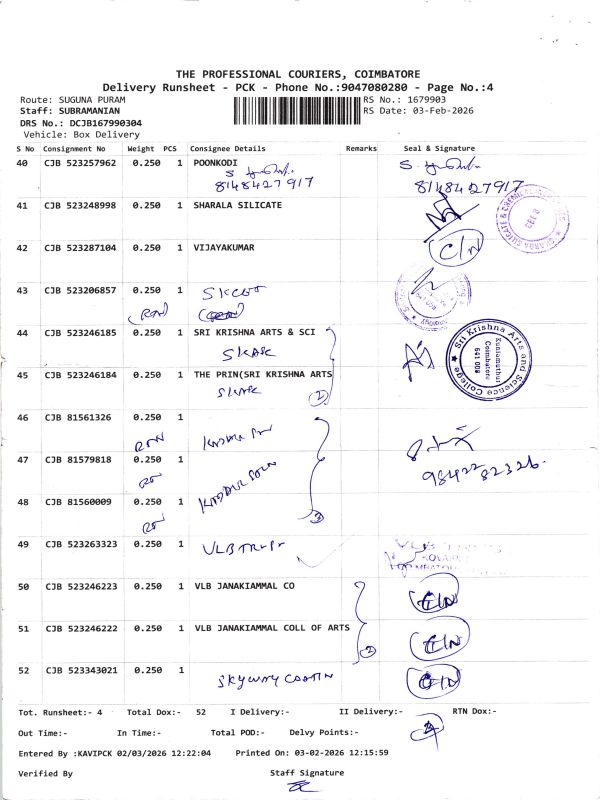 THE PROFESSIONAL COURIERS, COIMBATORE
Delivery Runsheet - PCK - Phone No.:9047080280 - Page No.:4
Route: SUGUNA PURAM RS No.: 1679903
Staff: SUBRAMANIAN RS Date: 03-Feb-2026
DRS No.: DCJB167990304
Vehicle: Box Delivery
S No Consignment No Weight PCS Consignee Details Remarks Seal & Signature
40 CJB 523257962 0.250 1 POONKODI
8148427917 8148427917
41 CJB 523248998 0.250 1 SHARALA SILICATE
42 CJB 523287104 0.250 1 VIJAYAKUMAR C/N
43 CJB 523206857 0.250 1 SKCET
44 CJB 523246185 0.250 1 SRI KRISHNA ARTS & SCI
SKASC
Sri Krishna Arts and Science College
Kuniamuthur
Coimbatore
641 008
45 CJB 523246184 0.250 1 THE PRIN(SRI KRISHNA ARTS
SKASC
2
46 CJB 81561326 0.250 1
47 CJB 81579818 0.250 1
98422 82326
48 CJB 81560009 0.250 1
3
49 CJB 523263323 0.250 1
VLB
50 CJB 523246223 0.250 1 VLB JANAKIAMMAL CO
C/N
51 CJB 523246222 0.250 1 VLB JANAKIAMMAL COLL OF ARTS
2 C/N
52 CJB 523343021 0.250 1
SKYWAY C/N
Tot. Runsheet:- 4 Total Dox:- 52 I Delivery:- II Delivery:- RTN Dox:-
Out Time:- In Time:- Total POD:- Delvy Points:-
Entered By :KAVIPCK 02/03/2026 12:22:04 Printed On: 03-02-2026 12:15:59
Verified By Staff Signature